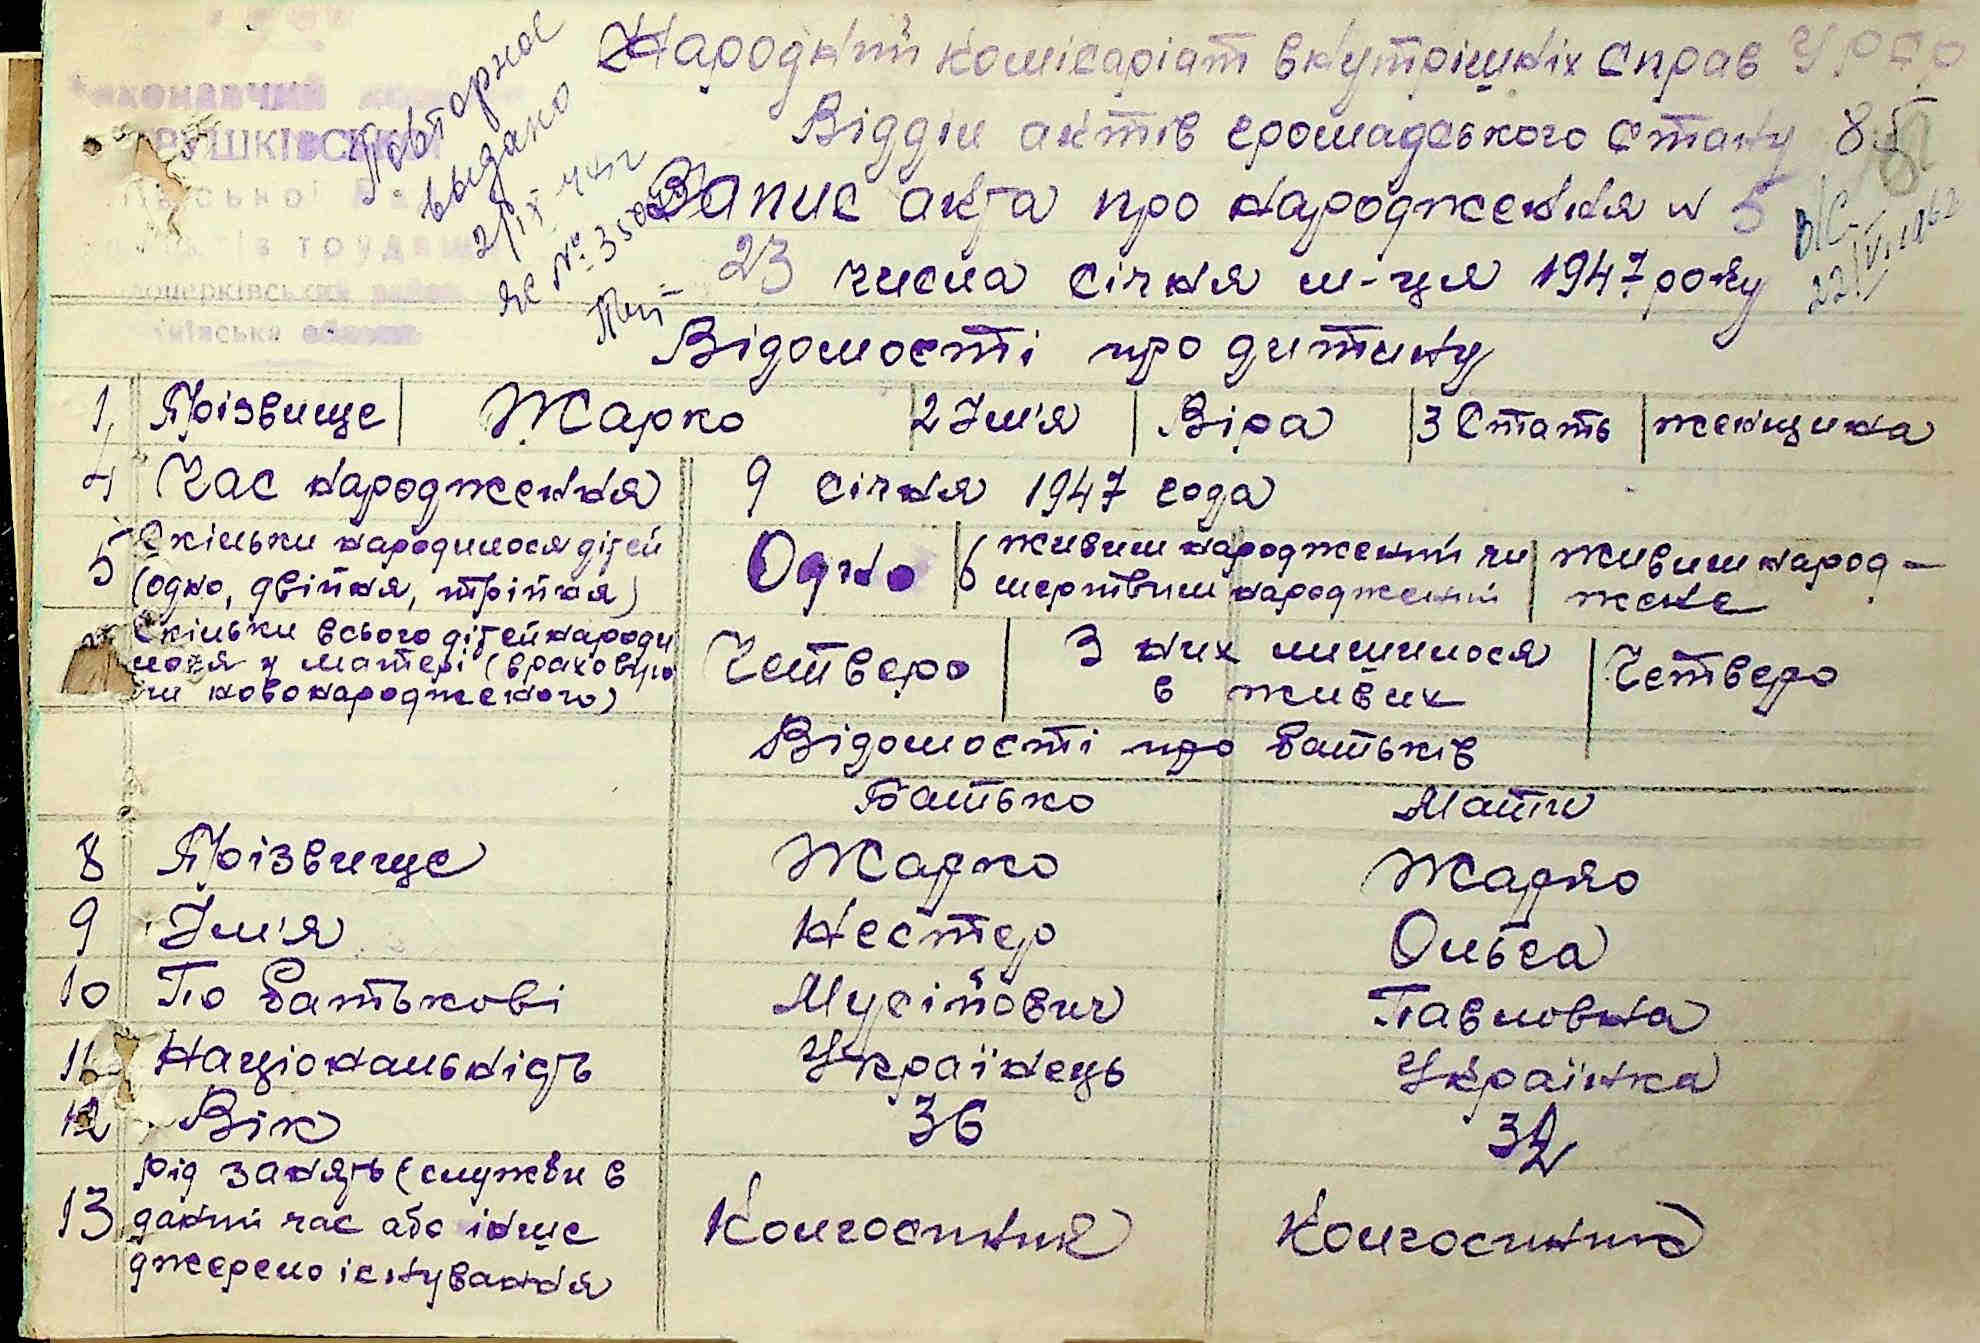 Народний комісаріат внутрішніх справ УРСР
Відділ актів громадського стану 85
Запис акта про народження № 5
23 числа січня м-ця 1947 року
Повторное
выдано
2/IX-44г
ЯС №
РУШКІВСЬКИЙ
трудящих
В/С
Відомості про дитину
1, Прізвище Жарко 2 Ім'я Віра 3 Стать женщина
4 Час народження 9 січня 1947 года
5 Скільки народилося дітей (одно, двійня, трійня) Одно 6 живим народжений чи мертвим народжений живим народ-жене
Скільки всього дітей народилося у матері (враховуючи новонародженого) Четверо З них лишилося в живих Четверо
Відомості про батьків
Батько Мати
8 Прізвище Жарко Жарко
9 Ім'я Нестер Ольга
10 По батькові Мусійович Павловна
11 Національність Українець Українка
12 Вік 36 32
13 Рід занять (служби в даний час або інше джерело існування Колгоспник Колгоспник